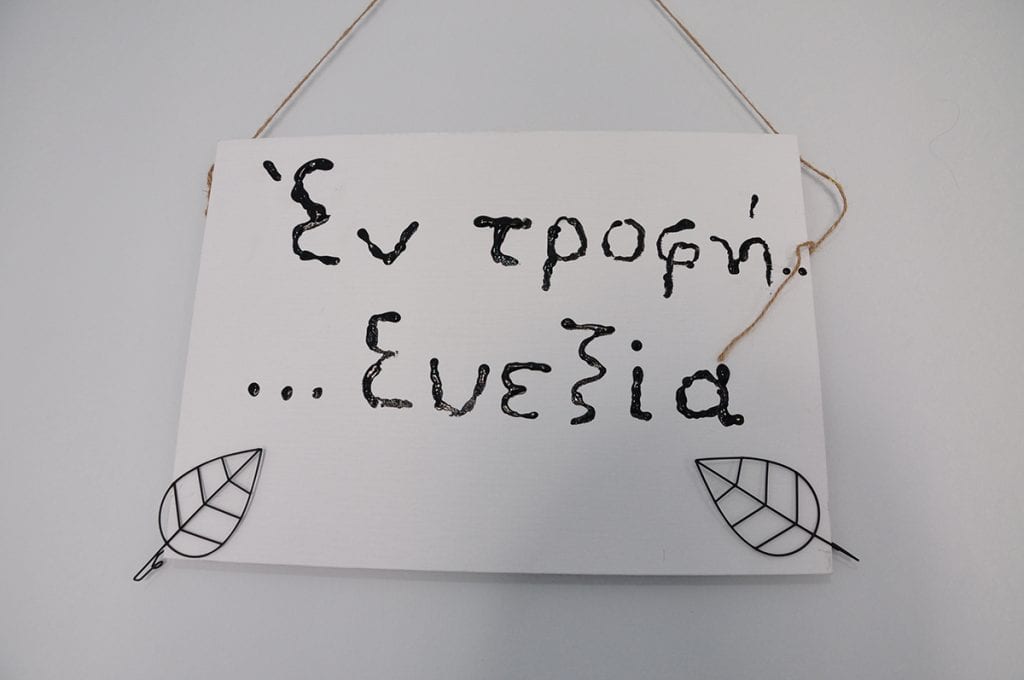 Ἐν τροφή..
... Ευεξία